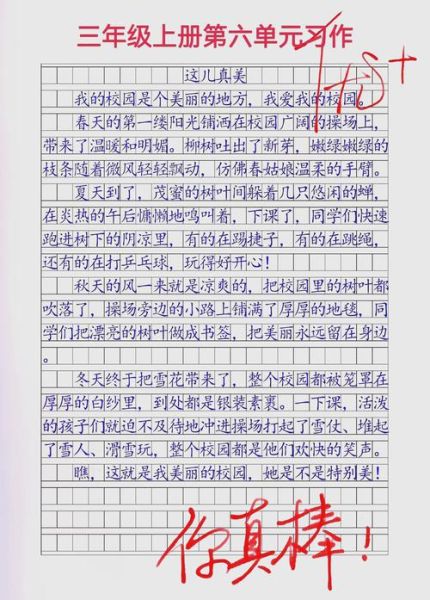 三年级上册第六单元习作
优+
这儿真美
我的校园是个美丽的地方，我爱我的校园。
春天的第一缕阳光铺洒在校园广阔的操场上，
带来了温暖和明媚。柳树吐出了新芽，嫩绿嫩绿的
枝条随着微风轻轻飘动，仿佛春姑娘温柔的手臂。
夏天到了，茂蜜的树叶间躲着几只悠闲的蝉，
在炎热的午后慵懒地鸣叫着，下课了，同学们快速
跑进树下的阴凉里，有的在踢毽子，有的在跳绳，
还有的在打乒乓球，玩得好开心！
秋天的风一来就是凉爽的，把校园里的树叶都
吹落了，操场旁边的小路上铺满了厚厚的地毯，同
学们把漂亮的树叶做成书签，把美丽永远留在身边
。
冬天终于把雪花带来了，整个校园都被笼罩在
厚厚的白纱里，到处都是银装素裹。一下课，活泼
的孩子们就迫不及待地冲进操场打起了雪仗、堆起
了雪人、滑雪玩，整个校园都是他们欢快的笑声。
瞧，这就是我美丽的校园，她是不是特别美！
你真棒！